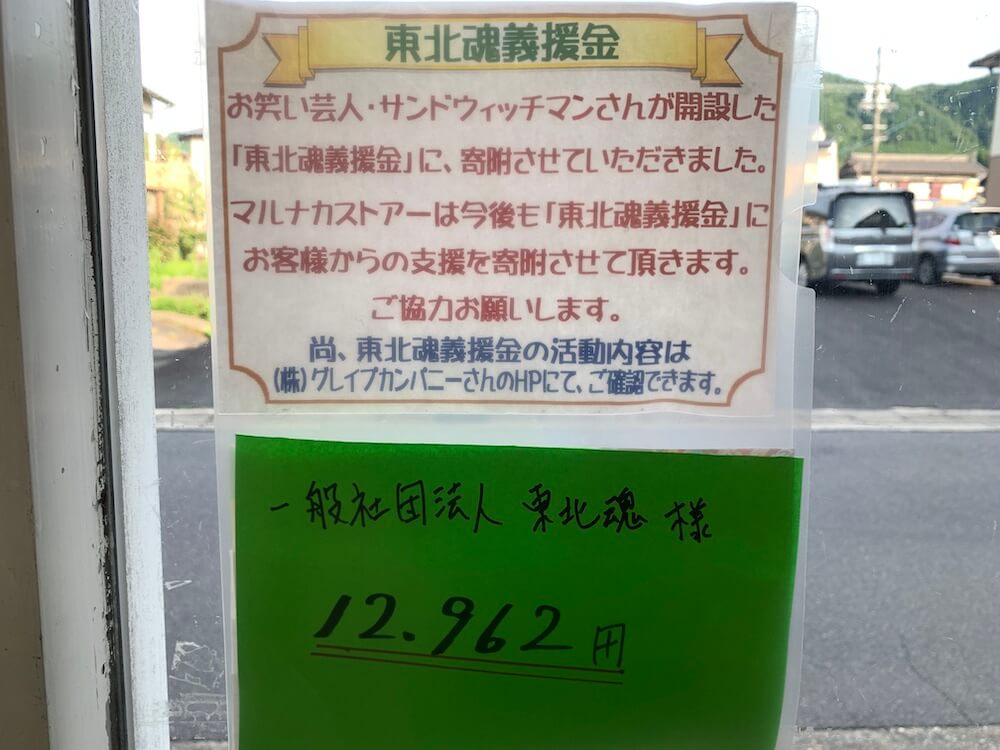 東北魂義援金
お笑い芸人・サンドウィッチマンさんが開設した
「東北魂義援金」に、寄附させていただきました。
マルナカストアーは今後も「東北魂義援金」に
お客様からの支援を寄附させて頂きます。
ご協力お願いします。
尚、東北魂義援金の活動内容は
(株)グレイプカンパニーさんのHPにて、ご確認できます。
一般社団法人 東北魂 様
12.962円